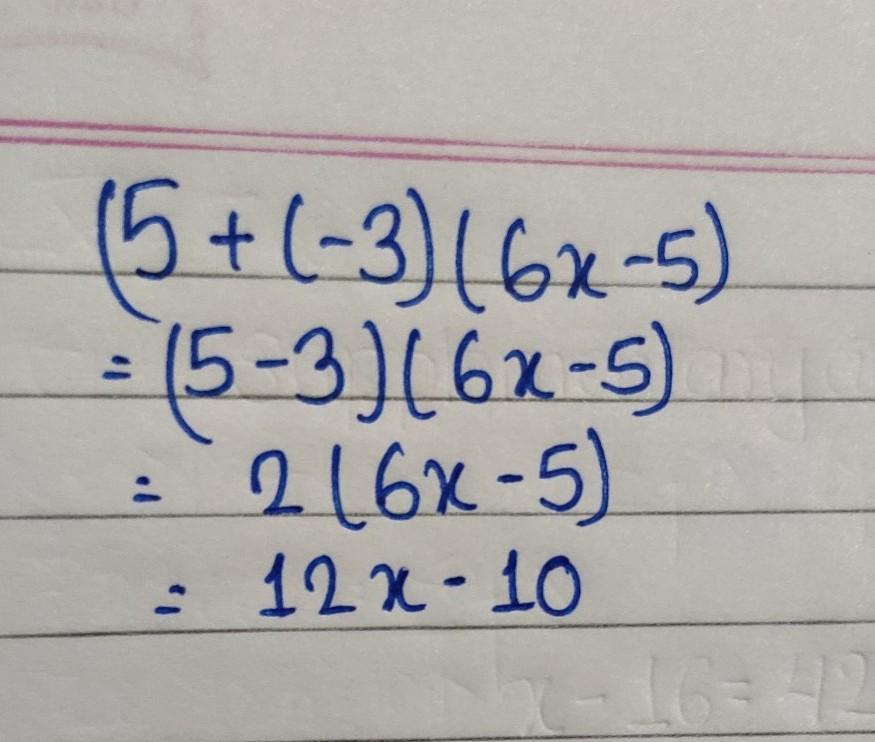 (5 + (-3)(6x-5)
= (5-3)(6x-5)
= 2(6x-5)
= 12x-10
x-16=42